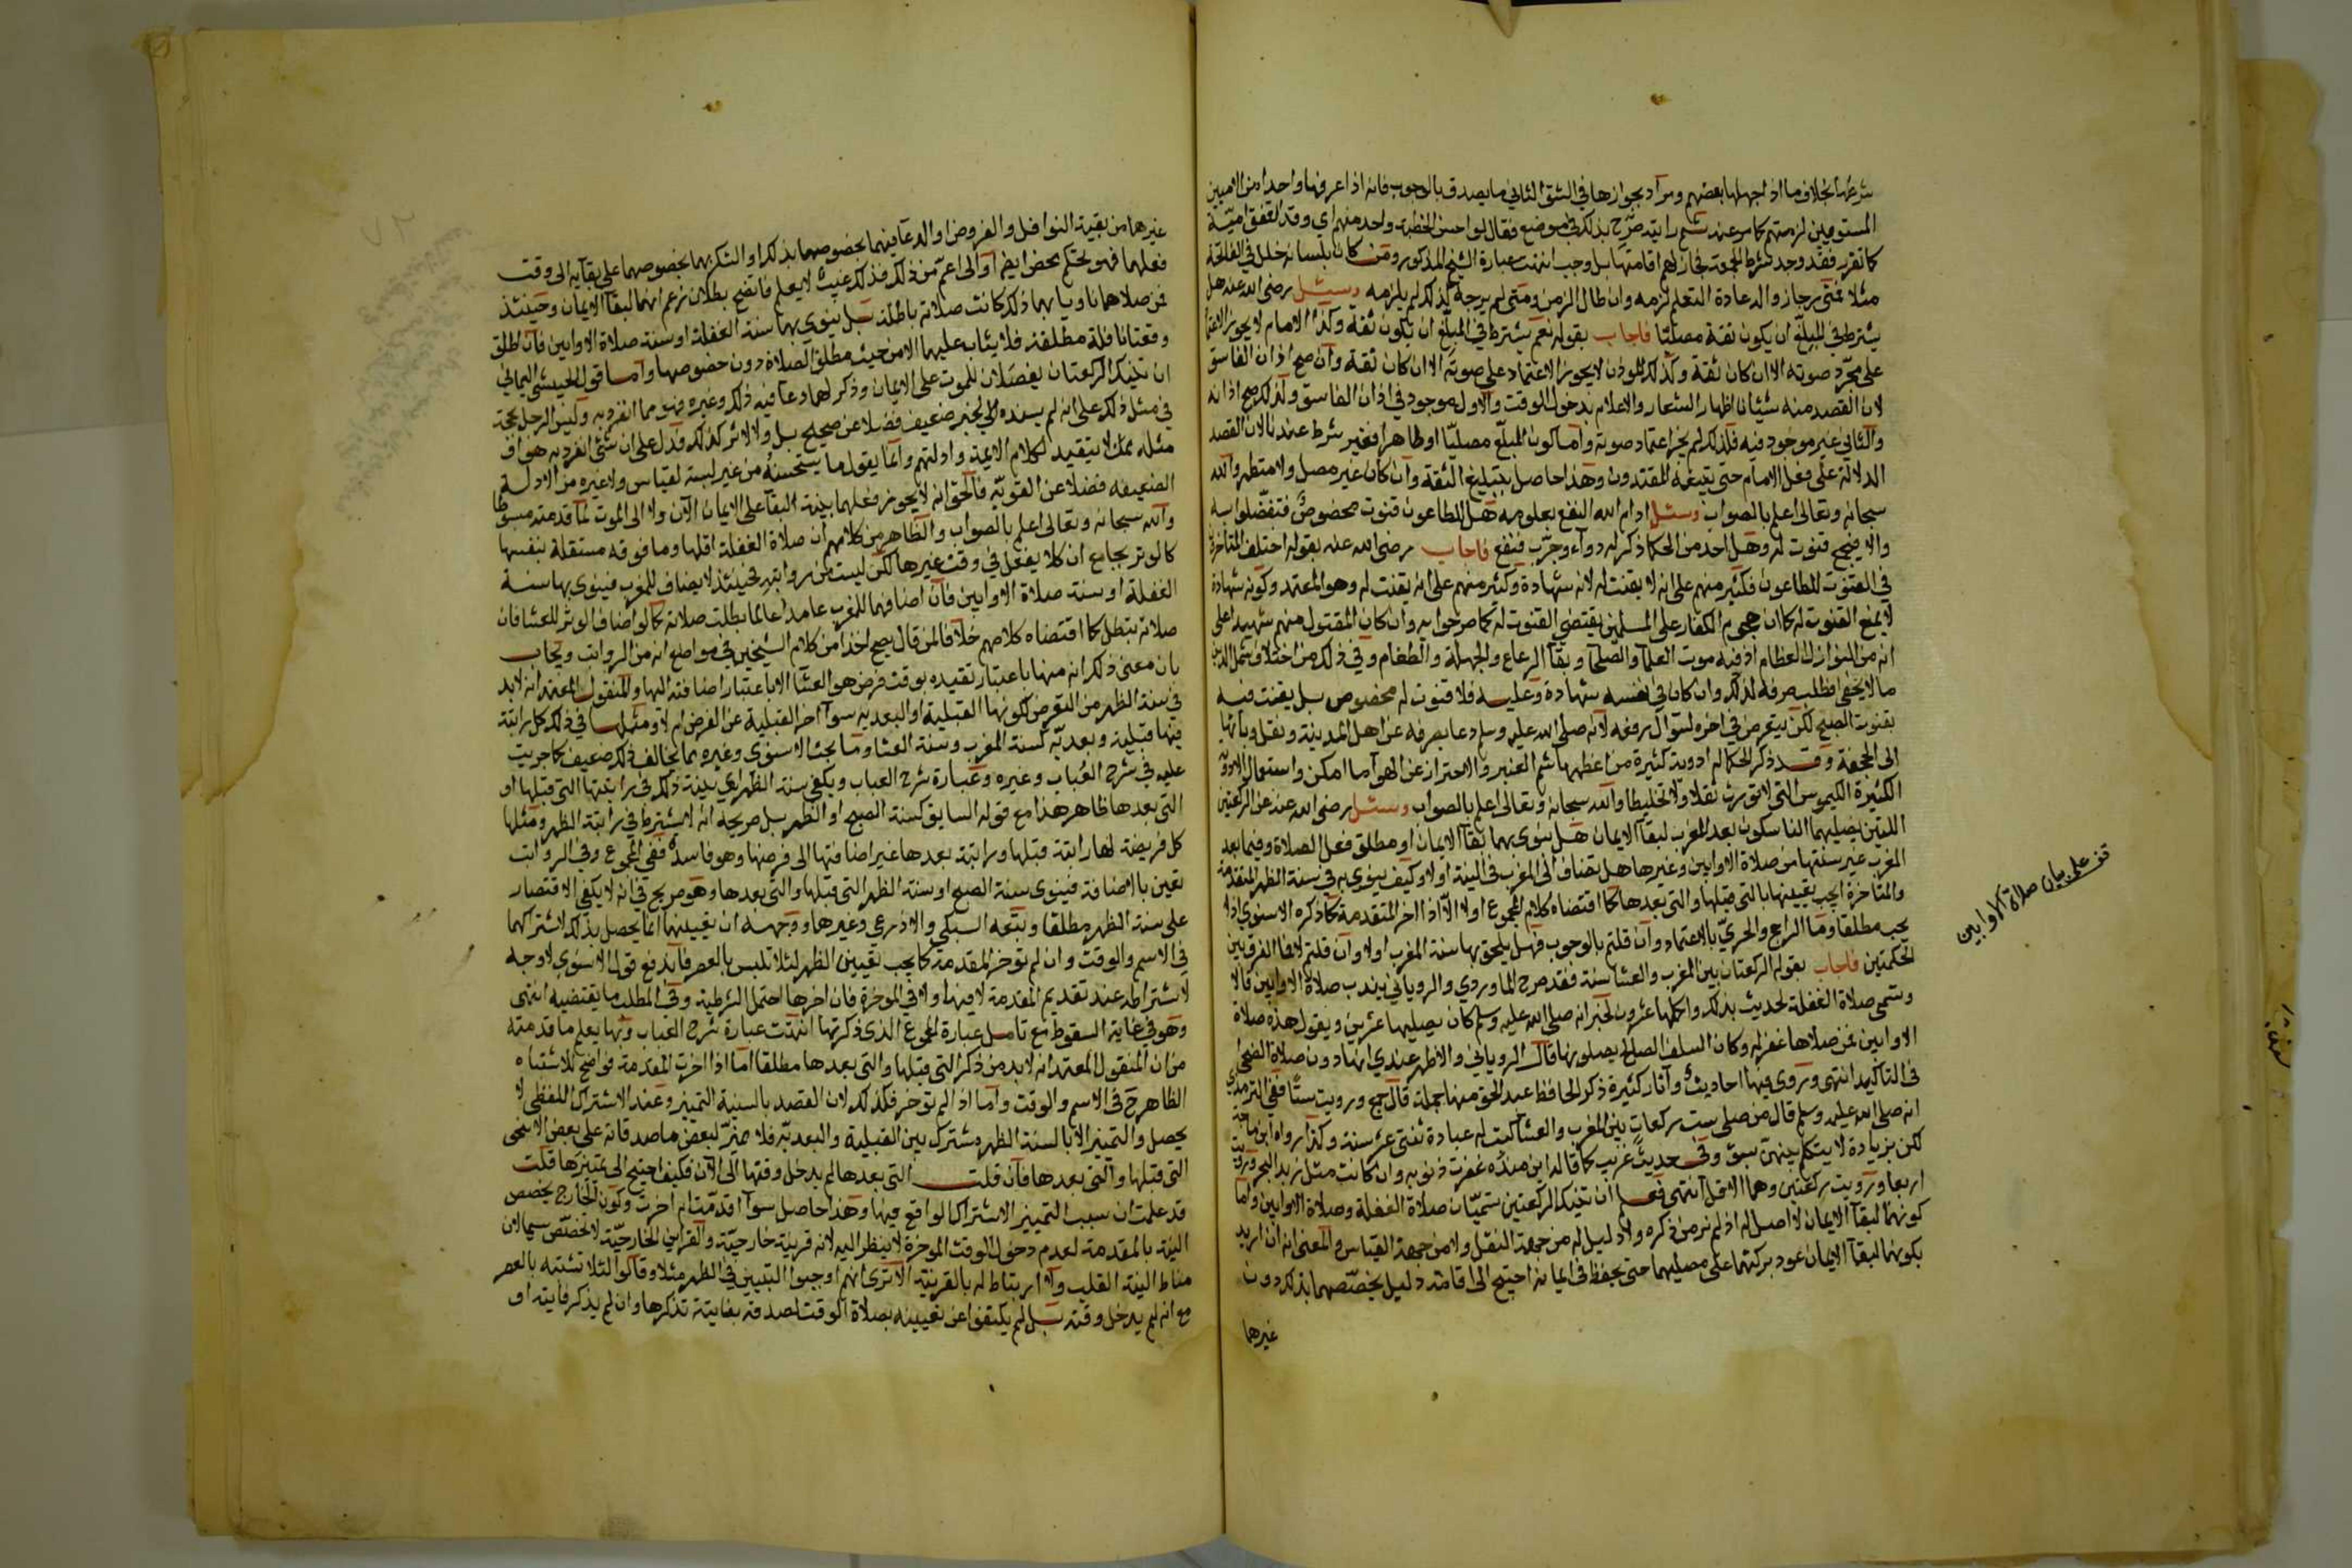 شرعها بخلاف ما اذا جهلها بعضهم ومراد بجوازها في الشق الثاني ما يصدق بالوجوب فانه اذا عرفها واحد من الاميين
المستومين لزمتهم كما مر عند صرح بذلك في موضع فقال لو احسن الخطبة واحد منهم اي وقد اتفق امية
كما تقرر فقد وجد شرط الجمعة فجاز لهم اقامتها بل وجب انتهت عبارة الشيخ المذكور ومن كان بلسانه خلل في الفاتحة
مثلا فمتى رجا زواله عادة التعلم لزمه وان طال الزمن ومتى لم يرجه كذلك لم يلزمه وسئل رضى الله عنه هل
يشترط في المبلغ ان يكون ثقة مصليا فاجاب بقوله نعم يشترط في المبلغ ان يكون ثقة وكذا الامام لا يجوز الاعتماد
على مجرد صوته الا ان كان ثقة وكذلك المؤذن لا يجوز الاعتماد على صوته الا ان كان ثقة وان صح اذان الفاسق
لان القصد منه شيئان اظهار الشعار والاعلام بدخول الوقت والاول موجود في اذان الفاسق ولذلك صح اذانه
والثاني غير موجود فيه فلذلك لم يجز اعتماد صوته واما كون المبلغ مصليا او طاهرا فغير شرط عندنا لان القصد
الدلالة على فعل الامام حتى يتبعه المقتدون وهذا حاصل بتبليغ الثقة وان كان غير مصل ولا متطهر والله
سبحانه وتعالى اعلم بالصواب وسئل ادام الله النفع بعلومه هل للطاعون قنوت مخصوص فتفضلوا به
والا فيصح قنوت له وهل احد من الحكما ذكر له دواء وجرب فنفع فاجاب رضى الله عنه بقوله اختلف المتاخرون
في القنوت للطاعون فكثير منهم على انه لا يقنت له لانه شهادة وكثير منهم على انه يقنت له وهو المعتمد وكونه شهادة
لا يمنع القنوت له كما ان هجوم الكفار على المسلمين يقتضي القنوت له كما صرحوا به وان كان المقتول منهم شهيدا على
انه من النوازل العظام اذ فيه موت العلما والصلحا وبقا الرعاع والجهلة والطغام وفي ذلك من اختلاف شمل الدين
ما لا يخفى فطلب صرفه لذلك وان كان في نفسه شهادة وعليه فلا قنوت له مخصوص بل يقنت فيه
بقنوت الصبح لكن يتعرض في اخره لسوال رفعه لانه صلى الله عليه وسلم دعا بصرفه عن اهل المدينة ونقل وبائها
الى الجحفة وقد ذكر الحكما له ادوية كثيرة من اظهرها شم العنبر والاحتراز عن الهوا ما امكن واستعمال الادوية
الكثيرة الكيموس التي لا تورث ثقلا ولا تخليطا والله سبحانه وتعالى اعلم بالصواب وسئل رضى الله عنه عن الركعتين
اللتين يصليهما الناسكون بعد المغرب لبقا الايمان هل ينوى بهما بقا الايمان او مطلق فعل الصلاة وفيما بعد
المغرب غير سنتها من صلاة الاوابين وغيرها هل تضاف الى المغرب في النية او لا وكيف ينوى به في سنة الظهر المتقدمة
والمتاخرة ايجب تعيينها بالتي قبلها والتي بعدها كما اقتضاه كلام المجموع او لا الا اذا اخر المتقدمة كما ذكره الاسنوي اذا
يجب مطلقا وما الراجح والحري بالاعتماد وان قلتم بالوجوب فهل يلحق بها سنة المغرب او لا وان قلتم لا فما الفرق بين
الحكمتين فاجاب بقوله الركعتان بين المغرب والعشا سنة فقد صرح الماوردي والروياني بندب صلاة الاوابين قالا
وتسمى صلاة الغفلة لحديث بذلك واكملها عشرون لخبر انه صلى الله عليه وسلم كان يصليها عشرين ويقول هذه صلاة
الاوابين فمن صلاها غفر له وكان السلف الصالح يصلونها قال الروياني والاظهر عندي انها دون صلاة الضحى
في التاكيد انتهى وتروى فيها احاديث وآثار كثيرة ذكر الحافظ عبد الحق منها جملة قال جمع ورويت ستا ففي الترمذي
انه صلى الله عليه وسلم قال من صلى ست ركعات بين المغرب والعشا كتبت له عبادة ثنتي عشر سنة وكذا رواه ابن ماجة
لكن بزيادة لا يتكلم بينهن بسوء وفي حديث غريب كما قاله ابن منده غفرت ذنوبه وان كانت مثل زبد البحر ورويت
اربعا ورويت ركعتين وهما الاقل انتهى فعلم ان تينك الركعتين تسميان صلاة الغفلة وصلاة الاوابين واما
كونهما لبقا الايمان لا اصل له اذ لم نر من ذكره ولا دليل له من جهة النقل ولا من جهة القياس والمعنى انه ان اريد
بكونهما لبقا الايمان عود بركتهما على مصليهما حتى يحفظ في ايمانه احتيج الى اقامة دليل يخصصهما بذلك دون
غيرهما
قف على بيان صلاة الاوابين
غيرها من بقية النوافل والفروض او الدعا فيهما بخصوصهما بذلك او الشكر بهما بخصوصهما على بقايه الى وقت
فعلهما فهو تحكم محض ايضا او الى اعم من ذلك فذلك غيب لا يعلم فاتضح بطلان زعم انهما لبقا الايمان وحينئذ
فمن صلاهما ناويا بهما ذلك كانت صلاته باطلة بل ينوى بهما سنة الغفلة او سنة صلاة الاوابين فان اطلق
وقعتا نافلة مطلقة فلا يثاب عليهما الا من حيث مطلق الصلاة دون خصوصها واما قول الحبيشي اليماني
ان تينك الركعتان يفضلان للموت على الايمان وذكر لهما دعا فيه ذلك وغيره فهو مما انفرد به وليس الرجل بحجة
في مثل ذلك على انه لم يسنده الى خبر ضعيف فضلا عن صحيح بل ولا لاثر كذلك فدل على ان شئ انفرد به هو اف
مثله ممن لا يتقيد لكلام الايمة وادلتهم وانما يقول ما يستحسنه من غير لبسته لقياس ولا غيره من الادلة
الضعيفة فضلا عن القوية فالحق انه لا يجوز فعلهما بنية البقا على الايمان الآن ولا الى الموت لما قدمته مبسوطا
والله سبحانه وتعالى اعلم بالصواب والظاهر من كلامهم ان صلاة الغفلة اقلها وما فوقه مستقلة بنفسها
كالوتر بجامع ان كلا يفعل في وقت غيرها لكن ليست من رواتبه فحينئذ لا يضاف للمغرب فينوى بها سنة
الغفلة او سنة صلاة الاوابين فان اضافهما للمغرب عامدا عالما بطلت صلاته كما لو اضاف الوتر للعشا فان
صلاته تبطل كما اقتضاه كلامهم خلافا لمن قال يصح اخذا من كلام الشيخين في مواضع انه من الرواتب ويجاب
بان معنى ذلك انه منها باعتبار تقيده بوقت فرض هو العشا لا باعتبار اضافته اليها والمنقول المعتمد انه لا بد
في سنة الظهر من التعرض لكونها القبلية او البعدية سوآ اخر القبلية عن الفرض ام لا ومثلها في ذلك كل راتبة
فيها قبلية وبعدية كسنة المغرب وسنة العشا وما بحثه الاسنوى وغيره مما يخالف ذلك ضعيف كما جريت
عليه في شرح العباب وغيره وعبارة شرح العباب ويكفي سنة الظهر اي بنية ذلك في راتبتها التي قبلها او
التي بعدها ظاهر هذا مع قوله السابق كسنة الصبح او الظهر بل صريحه انه لا يشترط في راتبة الظهر ومثلها
كل فريضة لها راتبة قبلها وراتبة بعدها غير اضافتها الى فرضها وهو فاسد ففي المجموع وفي الرواتب
تعين بالاضافة فينوى سنة الصبح او سنة الظهر التي قبلها والتي بعدها وهو صريح في انه لا يكفي الاقتصار
على سنة الظهر مطلقا وتبعه السبكي والاذرعي وغيرها ووجهه ان تعيينها انما يحصل بذلك لاشتراكهما
في الاسم والوقت وان لم تؤخر المقدمة كما يجب تعيين الظهر لئلا تلبس بالعصر فاندفع قول الاسنوي لا وجه
لاشتراطه عند تقديم المقدمة لا فيها ولا في الموخرة فان اخرها احتمل الشرطية وفي المطلب ما يقتضيه انتهى
وهو في غاية السقوط مع تامل عبارة المجموع الذي ذكرتها انتهت عبارة شرح العباب وبها يعلم ما قدمته
من ان المنقول المعتمد انه لا بد من ذكر التي قبلها والتي بعدها مطلقا اما اذا اخرت المقدمة فواضح للاشتباه
الظاهر ح في الاسم والوقت واما اذا لم توخر فكذلك لان القصد بالنية التمييز وعند الاشتراك اللفظي لا
يحصل والتمييز الا بالسنة الظهر مشترك بين القبلية والبعدية فلا مميز لبعض ما صدقاته على بعض الا بنحى
التي قبلها والتي بعدها فان قلت التي بعدها لم يدخل وقتها الى الآن فكيف احتيج الى تمييزها قلت
قد علمت ان سبب التمييز الاشتراك الواقع فيها وهذا حاصل سوآ اقدمت ام اخرت وكون الخارج يخصص
النية بالمقدمة لعدم دخول الوقت الموخرة لا ينظر اليه لانه قرينة خارجية والقراين الخارجية لا تخصص سيما لان
مناط النية القلب ولا ارتباط له بالقرينة الا ترى انهم اوجبوا التبيين في الظهر مثلا وقالوا لئلا تشتبه بالعصر
مع انه لم يدخل وقته بل لم يكتفوا عن تعيينه بصلاة الوقت لصدقه بفايتة تذكرها وان لم يذكر فايته او